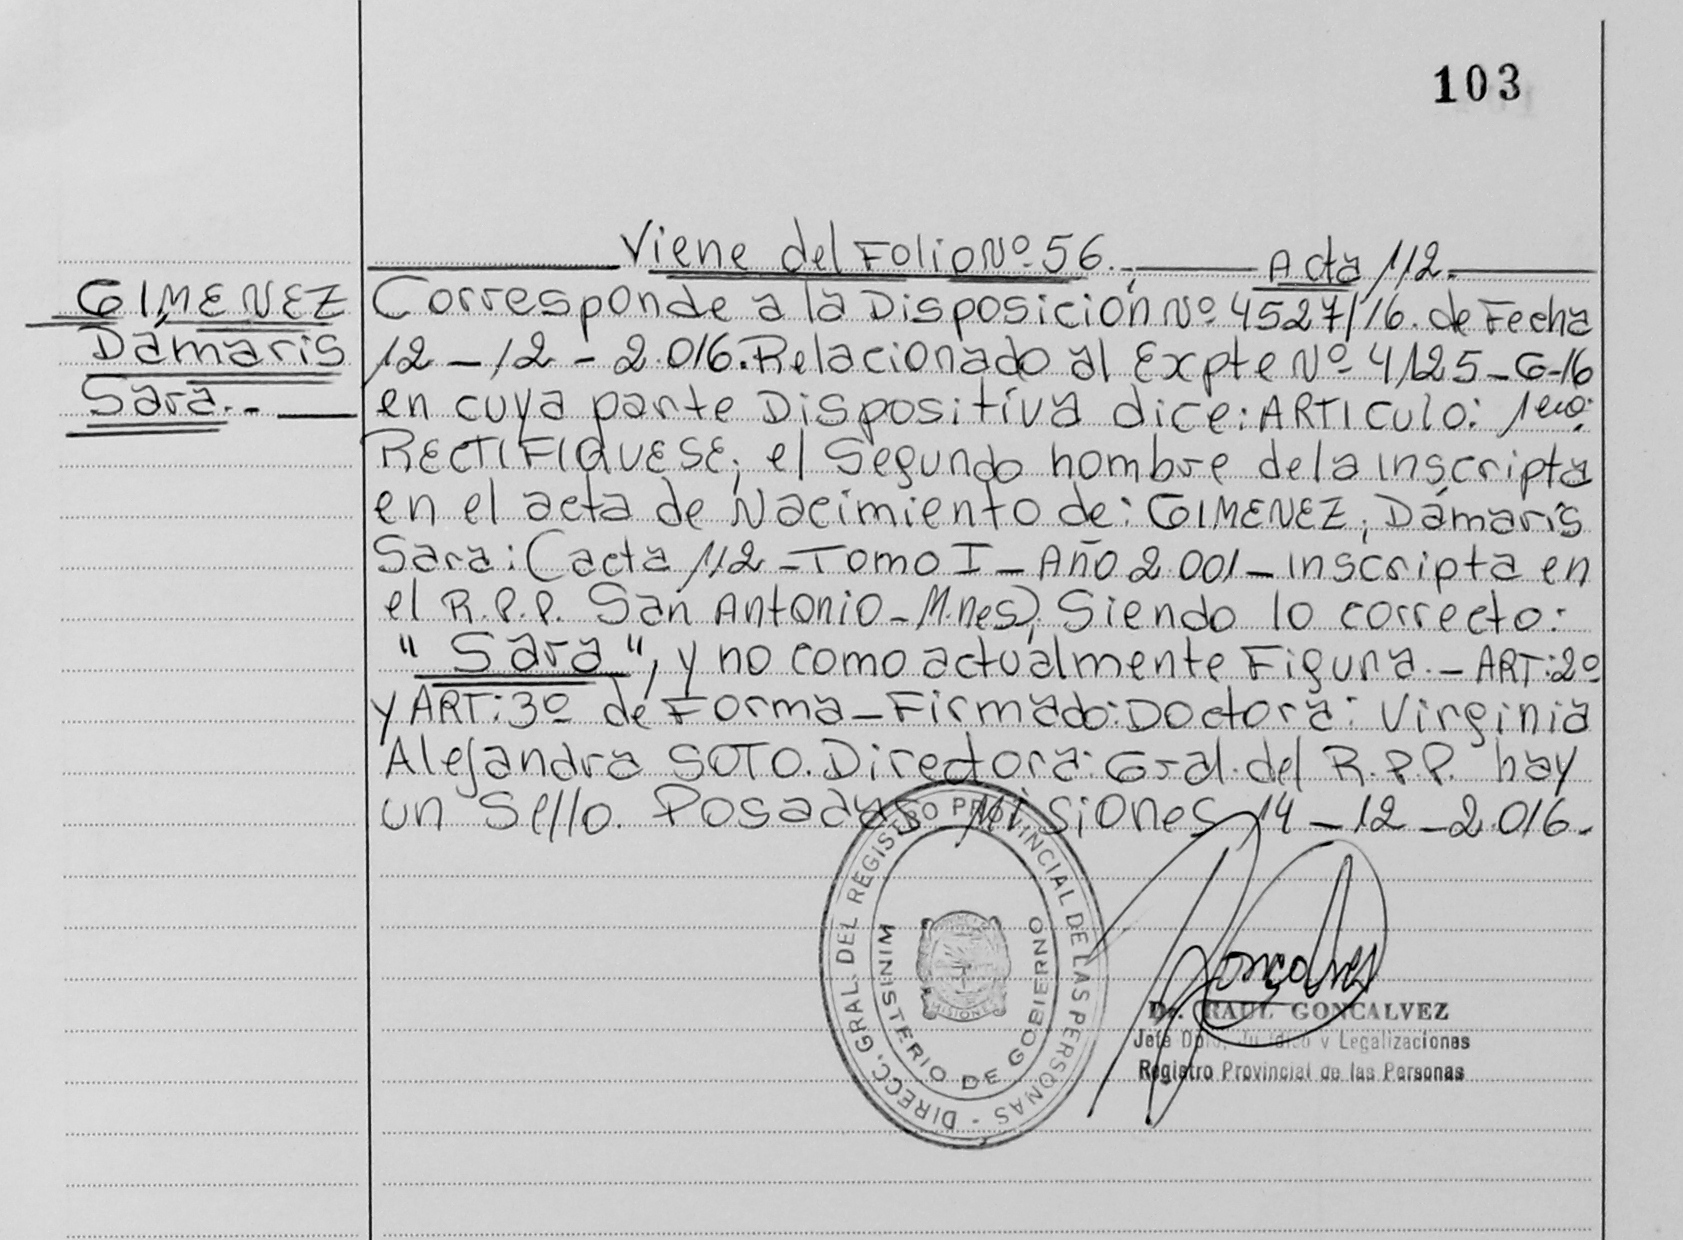 103
Viene del Folio Nº 56.- Acta 112.
GIMENEZ
Dámaris
Sara.-
Corresponde a la Disposición Nº 4527/16. de Fecha
12-12-2.016. Relacionado al Expte Nº 4125-G-16
en cuya parte Dispositiva dice: ARTICULO: 1ero:
RECTIFIQUESE; el Segundo nombre de la inscripta
en el acta de Nacimiento de: GIMENEZ, Dámaris
Sara: (acta 112 - Tomo I - Año 2.001 - inscripta en
el R.P.P. San Antonio - M.nes), Siendo lo correcto:
"Sara", y no como actualmente Figura.- ART: 2º
y ART: 3º de Forma - Firmado: Doctora: Virginia
Alejandra SOTO. Directora: Gral. del R.P.P. hay
un Sello. Posadas Misiones 14-12-2.016.-
DIRECC. GRAL. DEL REGISTRO PROVINCIAL DE LAS PERSONAS -
MINISTERIO DE GOBIERNO
MISIONES
Goncalves
Dr. RAUL GONCALVEZ
Jefe Dpto. Jurídico y Legalizaciones
Registro Provincial de las Personas